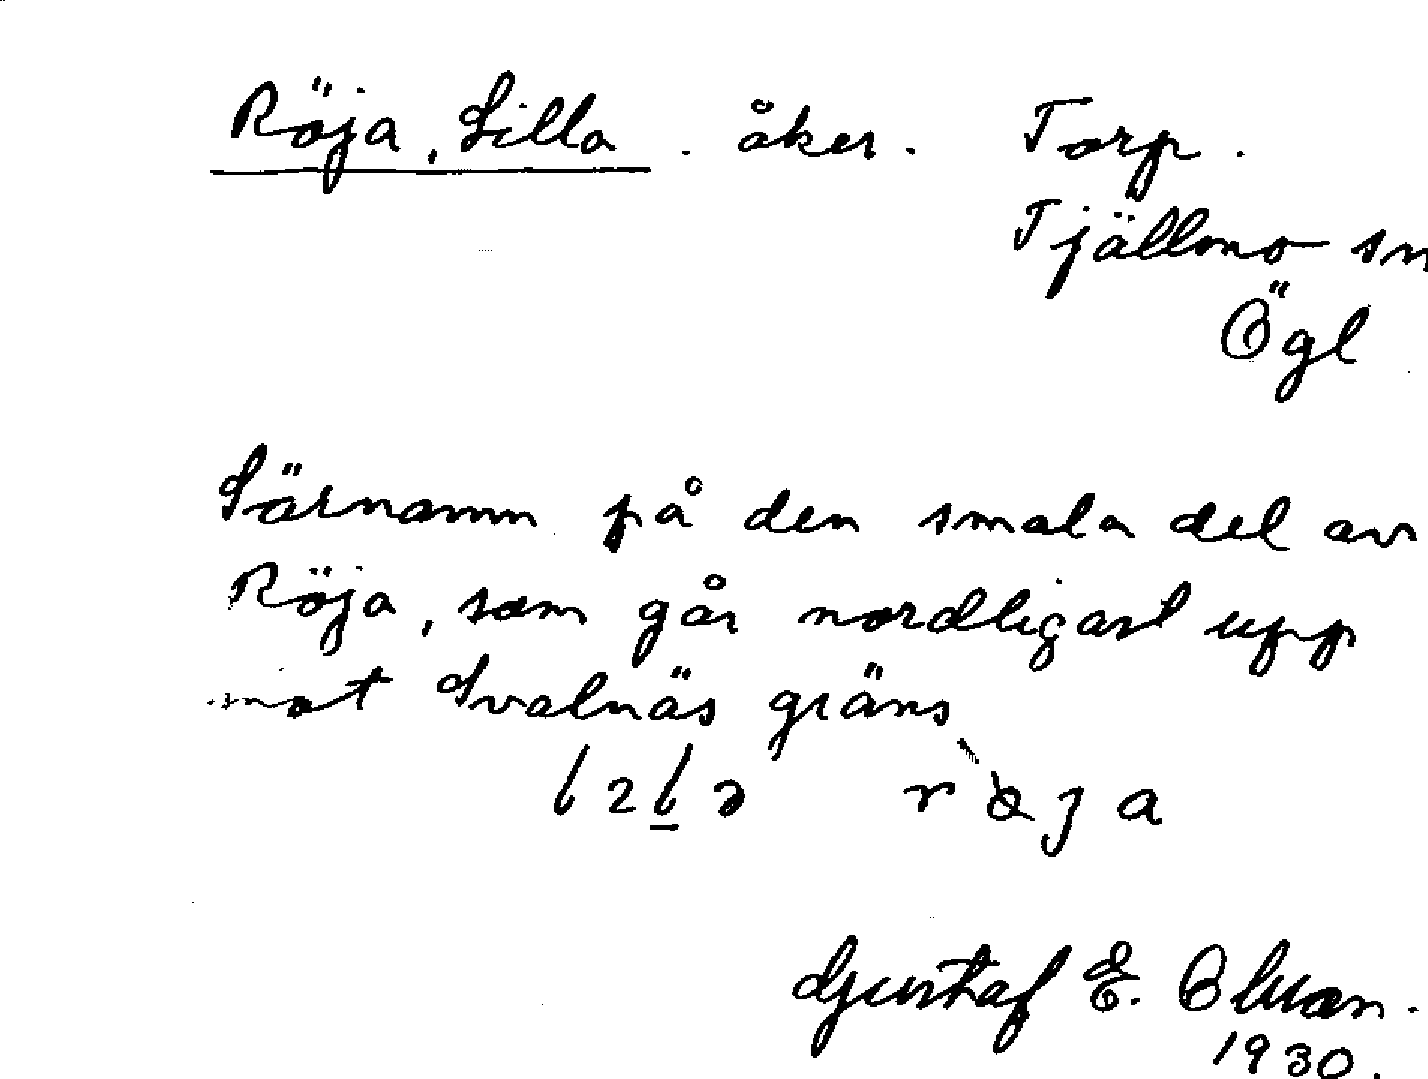 Röja, Lilla. åker. Torp.
Tjällmo sn
Ögl
Särnamn på den smala del av
Röja, som går nordligast upp
mot Svalnäs gräns
Gustaf E. Olson.
1930.